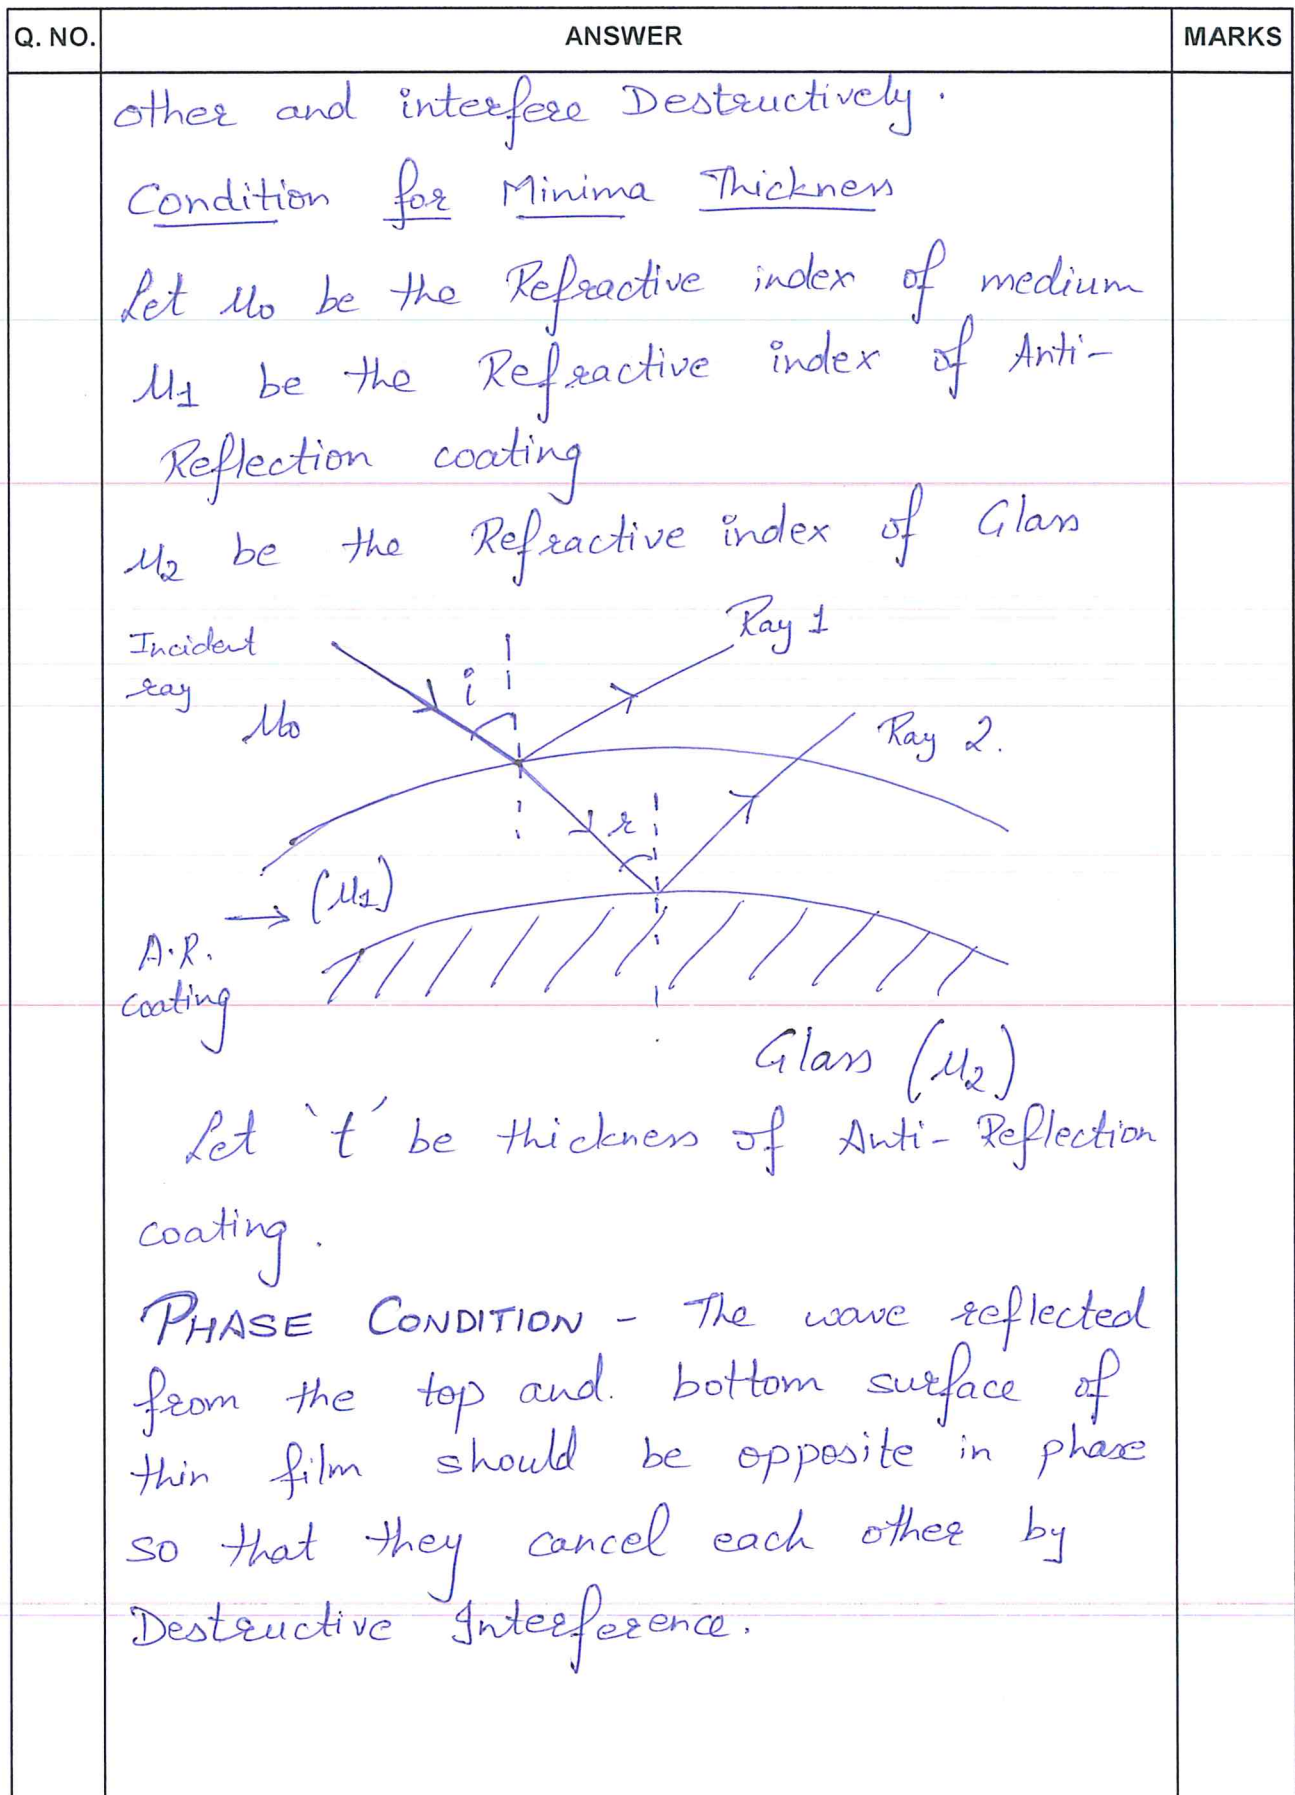 Q. NO. ANSWER MARKS
other and interfere Destructively.
Condition for Minima Thickness
Let μ0 be the Refractive index of medium
μ1 be the Refractive index of Anti-
Reflection coating
μ2 be the Refractive index of Glass
Incident
ray
μ0
i
Ray 1
Ray 2.
r
(μ1)
A.R.
coating
Glass (μ2)
Let 't' be thickness of Anti-Reflection
coating.
PHASE CONDITION - The wave reflected
from the top and. bottom surface of
thin film should be opposite in phase
so that they cancel each other by
Destructive Interference.